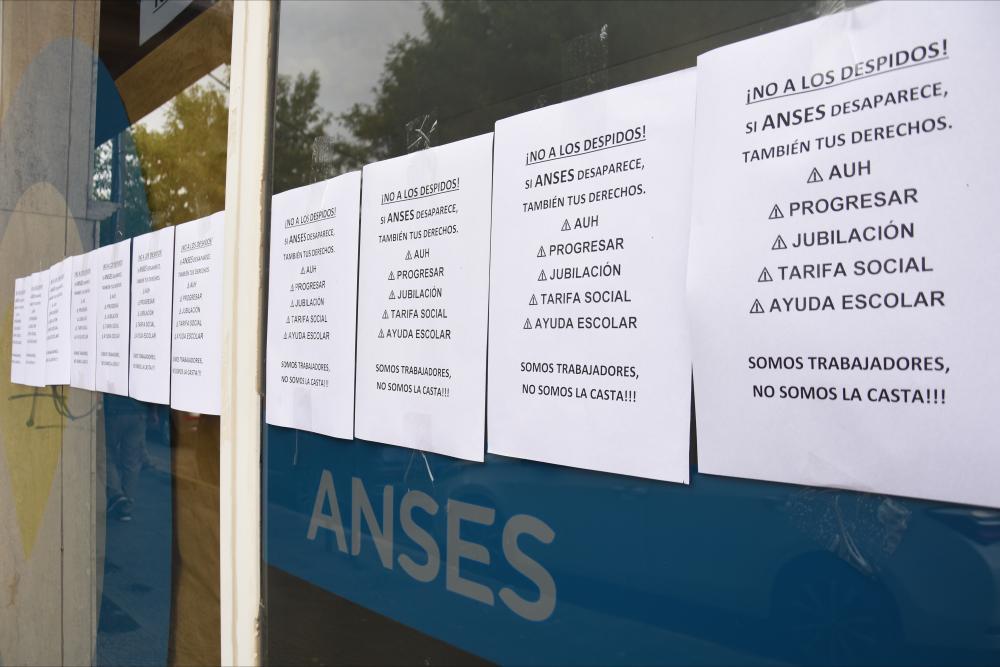 ¡NO A LOS DESPIDOS!
SI ANSES DESAPARECE,
TAMBIÉN TUS DERECHOS.
⚠ AUH
⚠ PROGRESAR
⚠ JUBILACIÓN
⚠ TARIFA SOCIAL
⚠ AYUDA ESCOLAR
SOMOS TRABAJADORES,
NO SOMOS LA CASTA!!!
¡NO A LOS DESPIDOS!
SI ANSES DESAPARECE,
TAMBIÉN TUS DERECHOS.
⚠ AUH
⚠ PROGRESAR
⚠ JUBILACIÓN
⚠ TARIFA SOCIAL
⚠ AYUDA ESCOLAR
SOMOS TRABAJADORES,
NO SOMOS LA CASTA!!!
¡NO A LOS DESPIDOS!
SI ANSES DESAPARECE,
TAMBIÉN TUS DERECHOS.
⚠ AUH
⚠ PROGRESAR
⚠ JUBILACIÓN
⚠ TARIFA SOCIAL
⚠ AYUDA ESCOLAR
SOMOS TRABAJADORES,
NO SOMOS LA CASTA!!!
¡NO A LOS DESPIDOS!
SI ANSES DESAPARECE,
TAMBIÉN TUS DERECHOS.
⚠ AUH
⚠ PROGRESAR
⚠ JUBILACIÓN
⚠ TARIFA SOCIAL
⚠ AYUDA ESCOLAR
SOMOS TRABAJADORES,
NO SOMOS LA CASTA!!!
¡NO A LOS DESPIDOS!
SI ANSES DESAPARECE,
TAMBIÉN TUS DERECHOS.
⚠ AUH
⚠ PROGRESAR
⚠ JUBILACIÓN
⚠ TARIFA SOCIAL
⚠ AYUDA ESCOLAR
SOMOS TRABAJADORES,
NO SOMOS LA CASTA!!!
ANSES